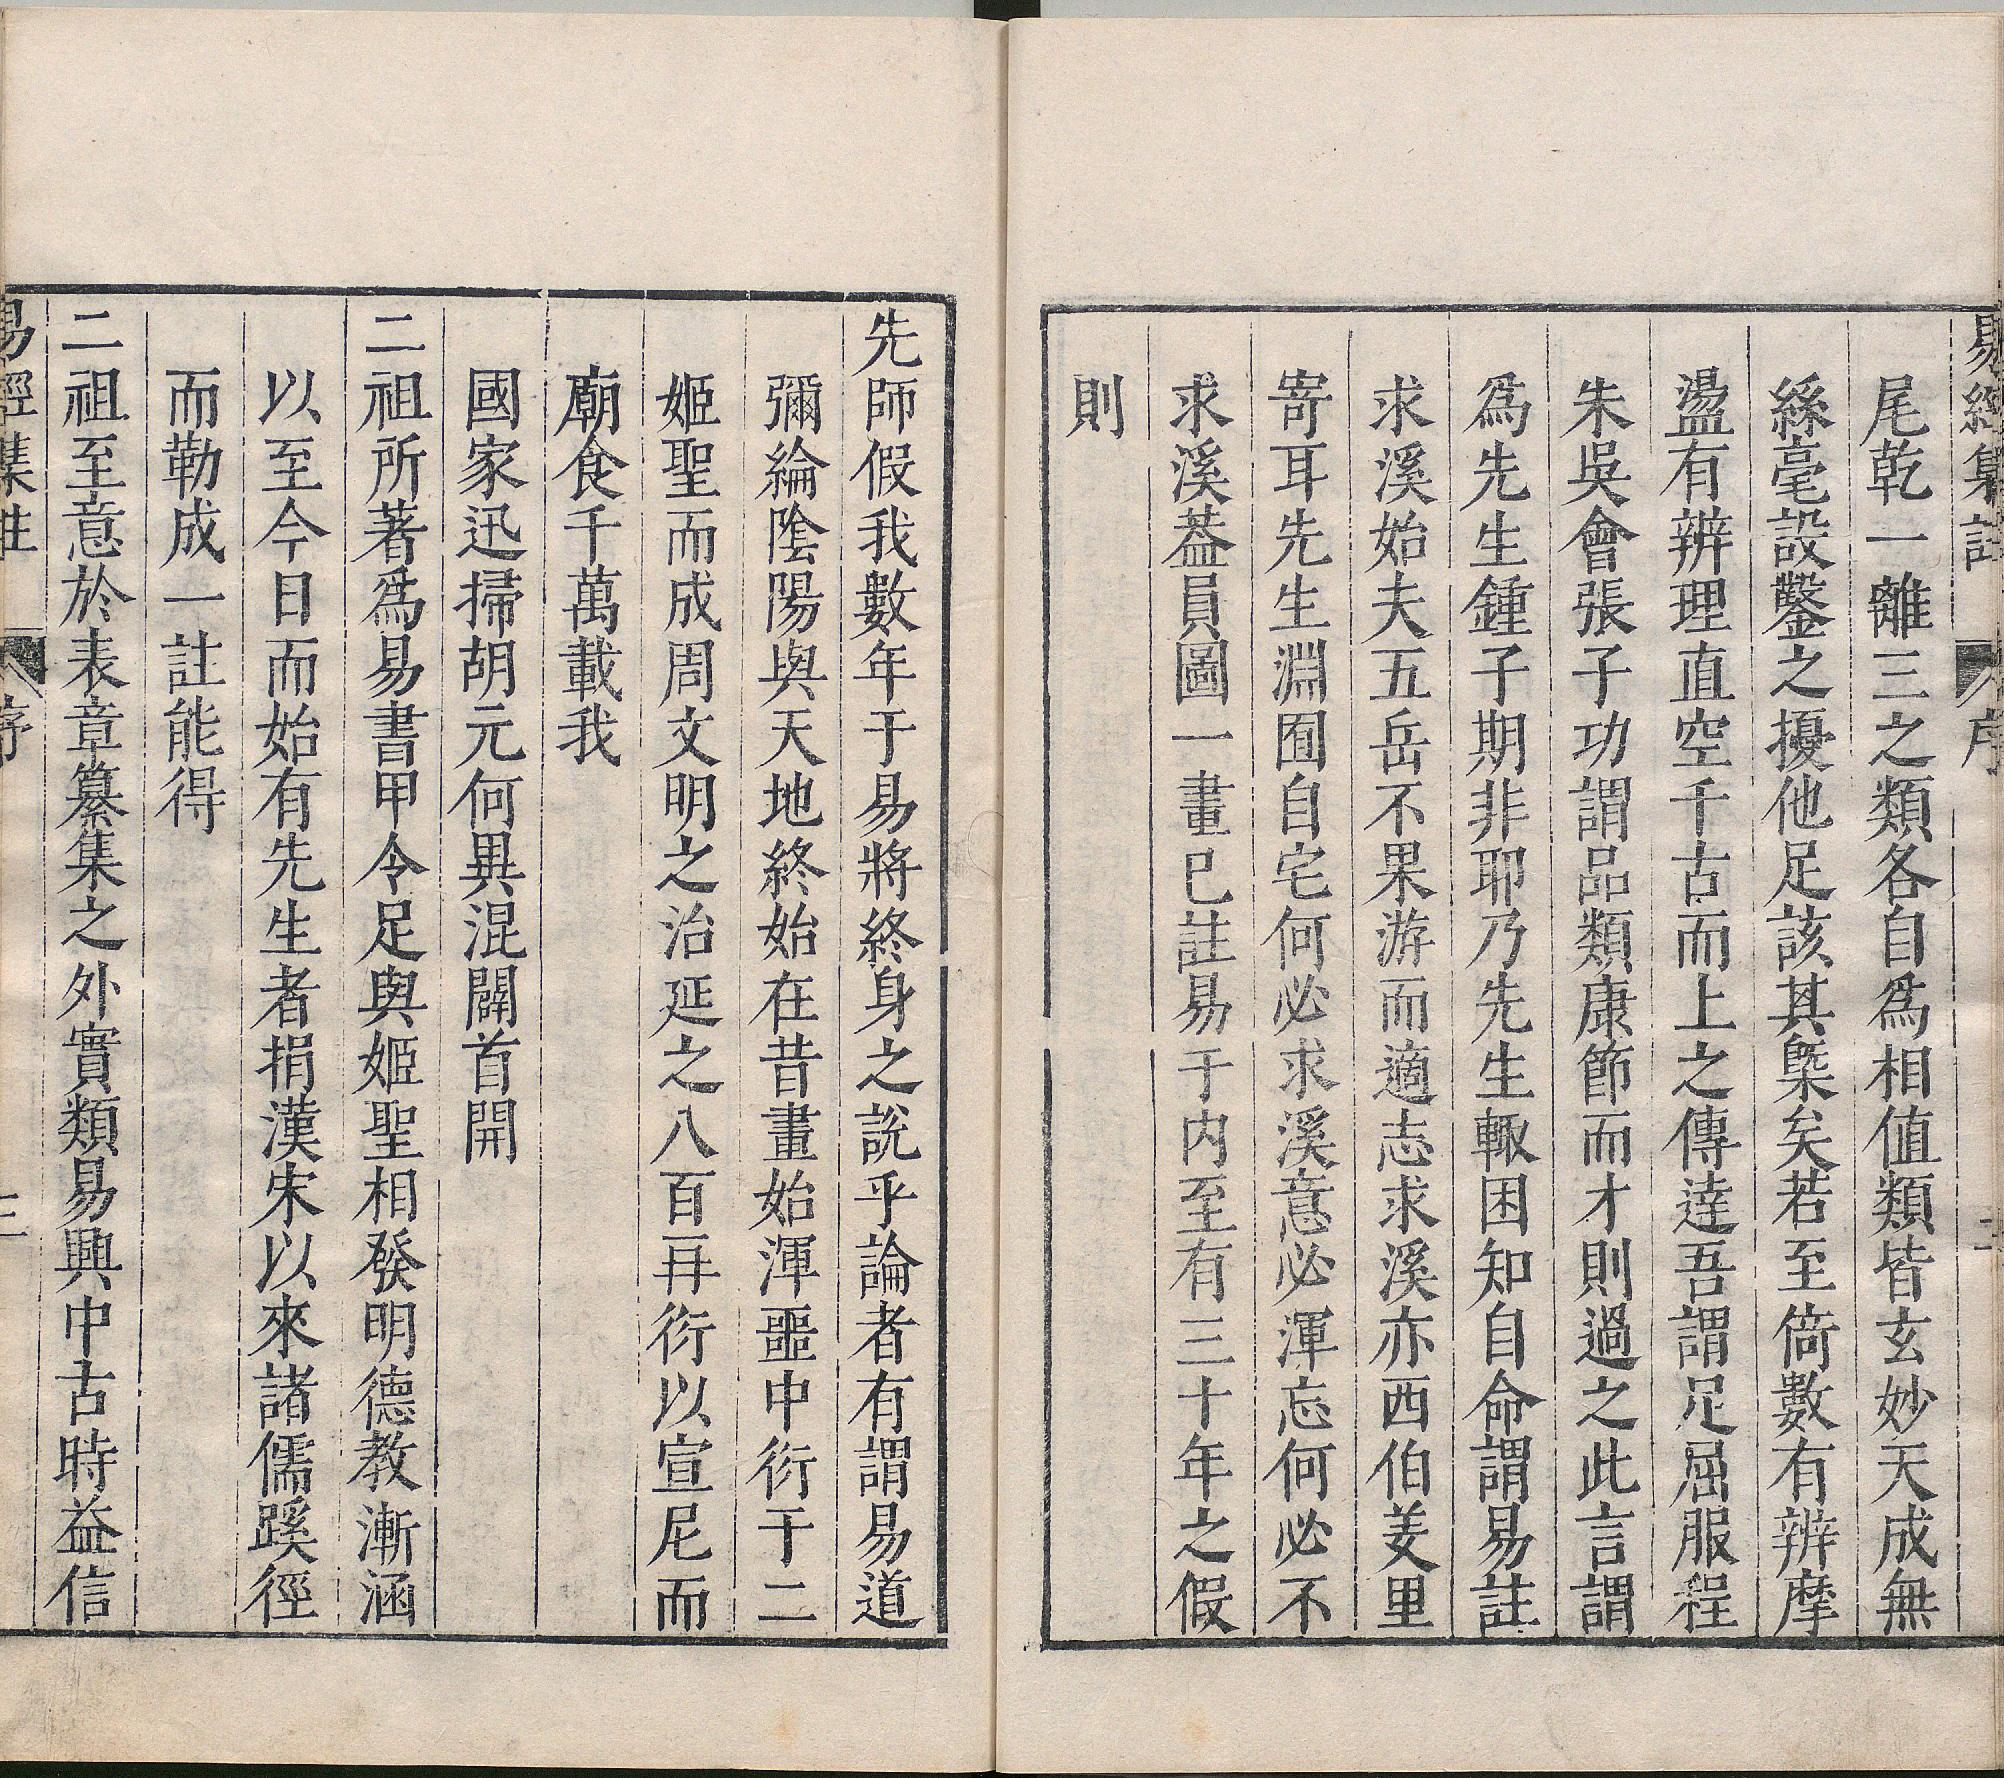 易經集註
序
二
尾乾一離三之類各自爲相值類皆玄妙天成無
絲毫設鑿之擾他足該其槩矣若至倚數有辨摩
盪有辨理直空千古而上之傳達吾謂足屈服程
朱吳會張子功謂品類康節而才則過之此言謂
爲先生鍾子期非耶乃先生輙困知自命謂易註
求溪始夫五岳不果游而適志求溪亦西伯羑里
寄耳先生淵囿自宅何必求溪意必渾忘何必不
求溪葢員圖一畫已註易于内至有三十年之假
則
先師假我數年于易將終身之說乎論者有謂易道
彌綸陰陽與天地終始在昔畫始渾噩中衍于二
姬聖而成周文明之治延之八百再衍以宣尼而
廟食千萬載我
國家迅掃胡元何異混闢首開
二祖所著爲易書甲令足與姬聖相發明德教漸涵
以至今日而始有先生者捐漢宋以來諸儒蹊徑
而勒成一註能得
二祖至意於表章纂集之外實類易興中古時益信
易經集註
序
三